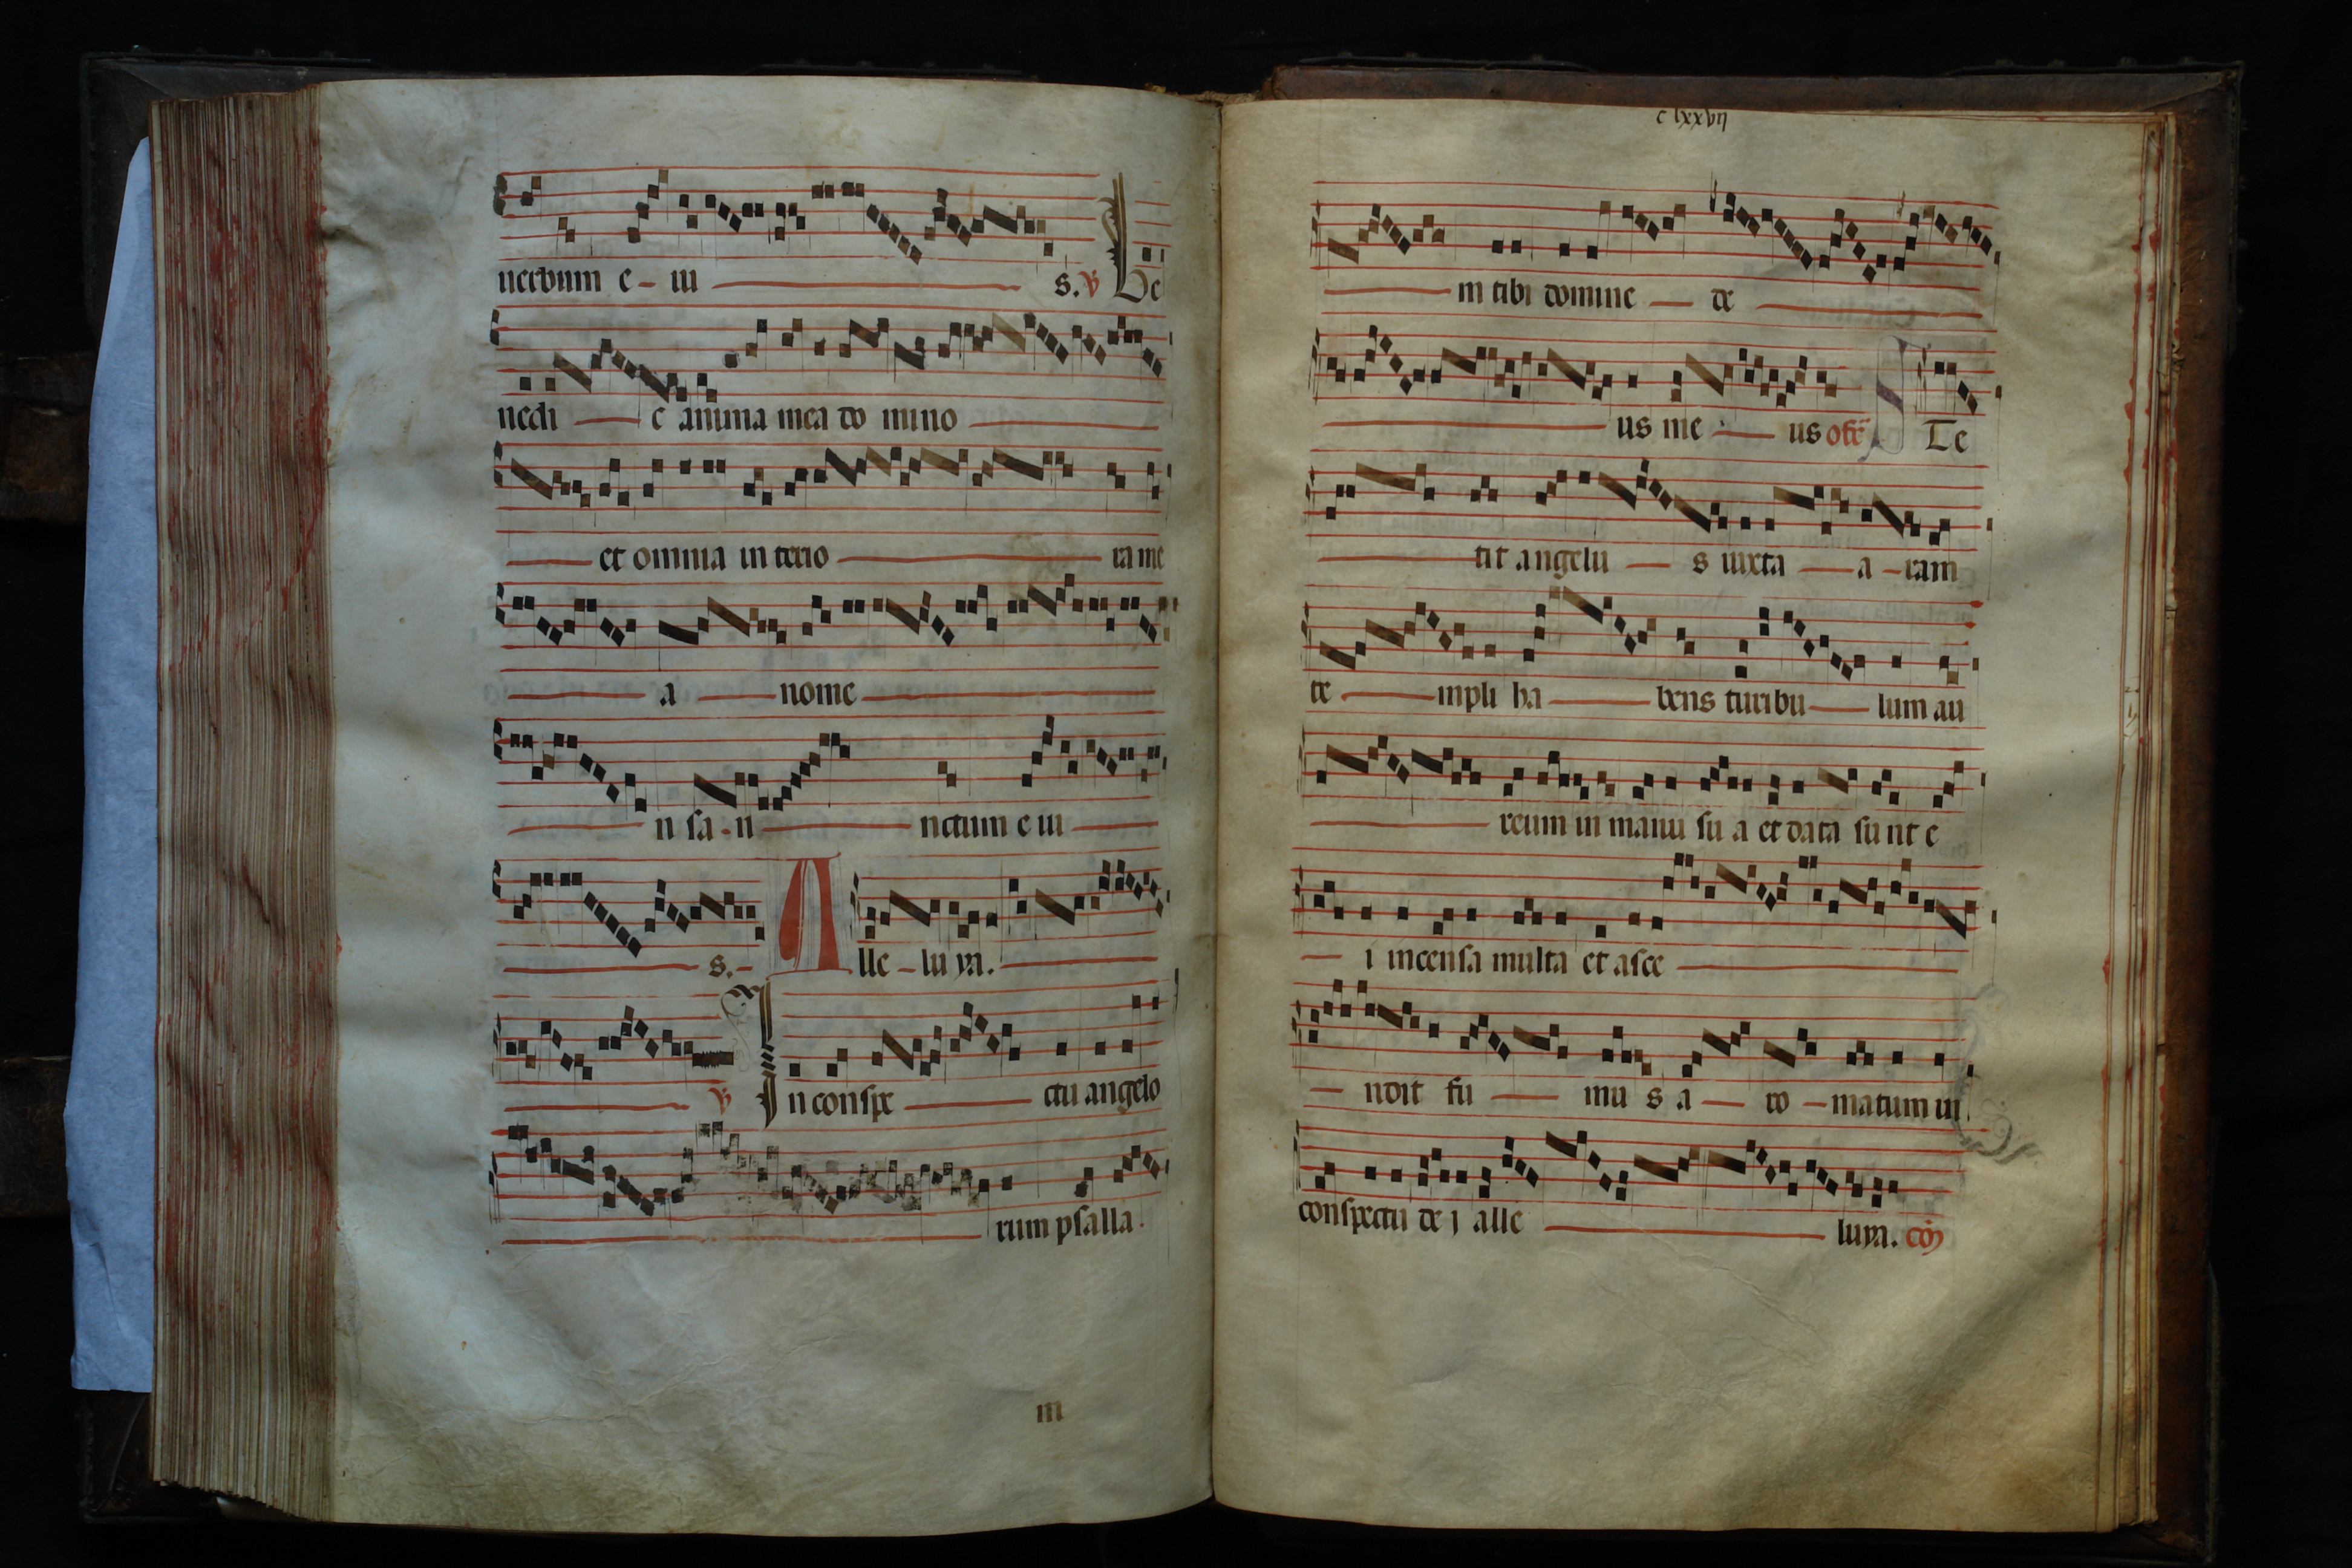 uerbum e - iu s. ℣ Be
nedi c anima mea do mino
et omnia in terio ra me
a nome
n sa - n nctum e iu
s. - Alle - lu ya.
℣ In conspe ctu angelo
rum psalla.
m
c lxxvij
m tibi domine de
us me us ofē Ste
tit angelu s iuxta a - ram
te mpli ha bens turibu lum au
reum in manu su a et data su nt e
i incensa multa et asce
ndit fu mu s a ro - matum in
conspectu de j alle luya. cō